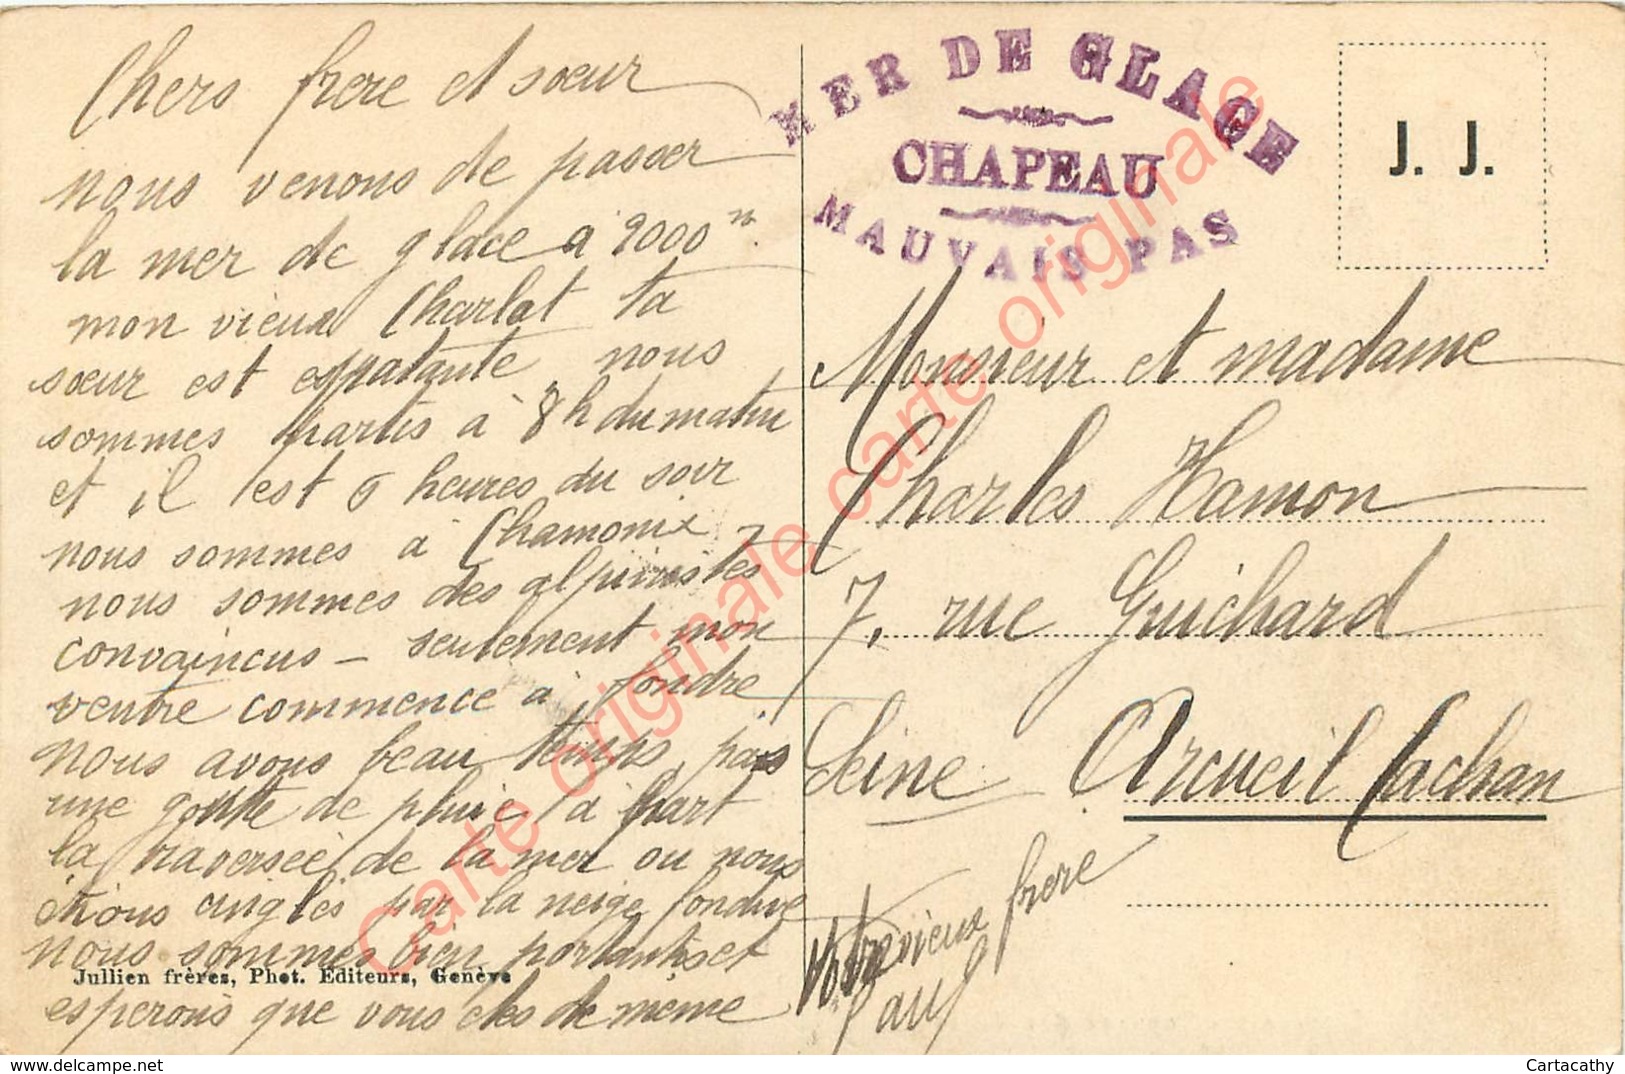 Chers frere et sœur
nous venons de passer
la mer de glace a 2000 m.
mon vieux Charlot ta
sœur est espatante nous
sommes partis à 8 h du matin
et il est 6 heures du soir
nous sommes à Chamonix
nous sommes des alpinistes
convaincus — seulement mon
ventre commence a fondre
nous avons beau temps pas
une goutte de pluie à part
la traversée de la mer ou nous
étions cinglés par la neige fondue
nous sommes bien portants et
esperons que vous etes de meme
Jullien frères, Phot. Editeurs, Genève
MER DE GLACE
CHAPEAU
MAUVAIS PAS
J. J.
Monsieur et madame
Charles Hamon
7, rue Guichard
Arcueil Cachan
Seine
Votre vieux frere
Paul
Carte originale carte originale carte originale
www.delcampe.net
Cartacathy